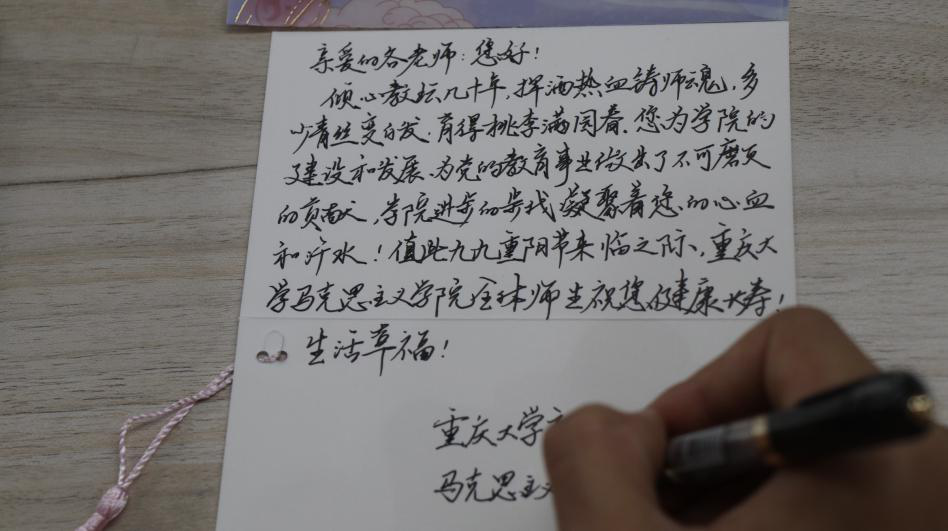 亲爱的各老师:您好!
倾心教坛几十年,挥洒热血铸师魂,多
少青丝变白发,育得桃李满园春、您为学院的
建设和发展、为党的教育事业做出了不可磨灭
的贡献,学院进步的步伐凝聚着您的心血
和汗水!值此九九重阳节来临之际、重庆大
学马克思主义学院全体师生祝您健康长寿!
生活幸福!
重庆大学
马克思主义